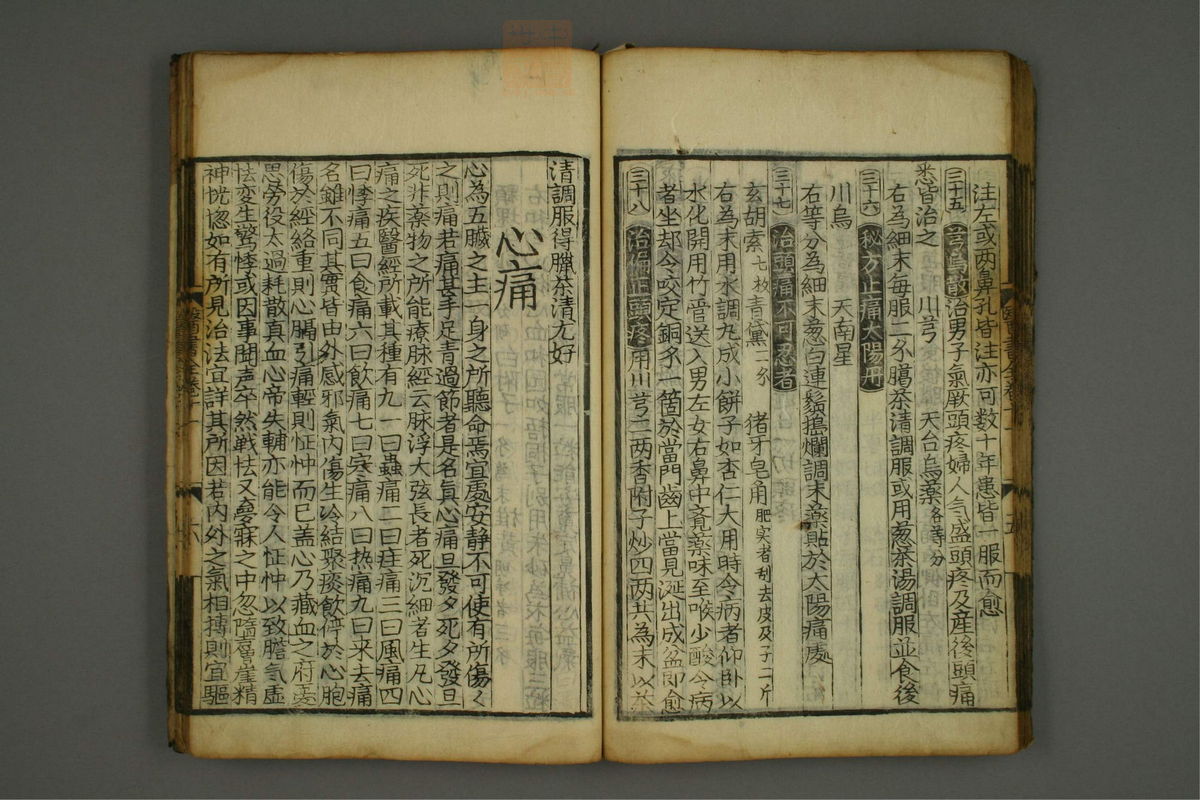 注左或两鼻孔皆注亦可数十年患皆一服而愈
三十五 芎烏散 治男子氣厥頭疼婦人气盛頭疼乃産後頭痛
悉皆治之 川芎 天台烏藥 各等分
右為細末每服二分臈茶清調服或用葱茶湯調服並食後
三十六 秘方止痛太陽丹
川烏 天南星
右等分為細末葱白連鬚搗爛調末藥貼於太陽痛處
三十七 治頭痛不可忍者
玄胡索 七枚 青黛 二分 猪牙皂角 肥实者刮去皮及子二斤
右為末用水調丸成小餅子如杏仁大用時令病者仰卧以
水化開用竹管送入男左女右鼻中竟藥味至喉少酸令病
者坐却令咬定銅錢一箇於當門齒上當見涎出成盆即愈
三十八 治偏正頭疼 用川芎二两香附子炒四两共為末以茶
清調服得臘茶清尤好
心痛
心為五臟之主一身之所聽命焉宜處安静不可使有所傷〻
之則痛若痛甚手足青過節者是名眞心痛旦發夕死夕發旦
死非藥物之所能療脉經云脉浮大弦長者死沉細者生凡心
痛之疾醫經所載其種有九一曰蟲痛二曰疰痛三曰風痛四
曰悸痛五曰食痛六曰飲痛七曰寒痛八曰热痛九曰来去痛
名雖不同其實皆由外感邪氣内傷生冷結聚痰飲停於心胞
傷於經絡重則心膈引痛輕則怔忡而已盖心乃藏血之府憂
思勞役太過耗散真血心帝失輔亦能令人怔忡以致膽气虚
怯变生驚悸或因事闘声卒然戦怯又夢寐之中忽墮層崖精
神恍惚如有所見治法宜詳其所因若内外之氣相搏則宜驅